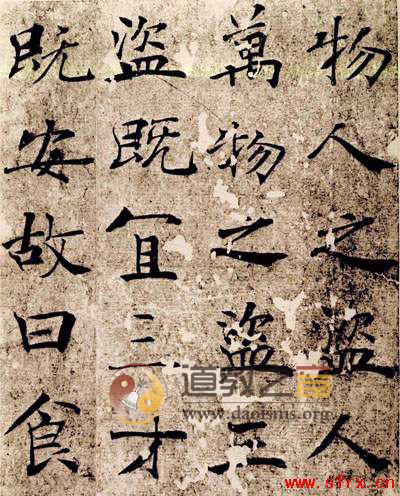 物人之盜人
萬物之盜三
盜既宜三才
既安故曰食
道教之音
www.daoisms.org
www.sfrx.cn